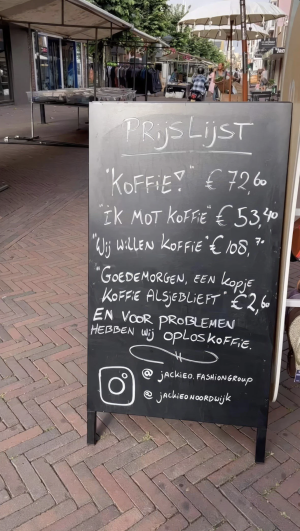 PRIJSLIJST
"KOFFIE!" €72,60
"IK MOT KOFFIE" €53,40
"WIJ WILLEN KOFFIE" €108,70
"GOEDEMORGEN, EEN KOPJE
KOFFIE ALSJEBLIEFT" €2,60
EN VOOR PROBLEMEN
HEBBEN WIJ OPLOSKOFFIE.
@ JACKIEO.FASHIONGROUP
@ JACKIEONOORDWIJK